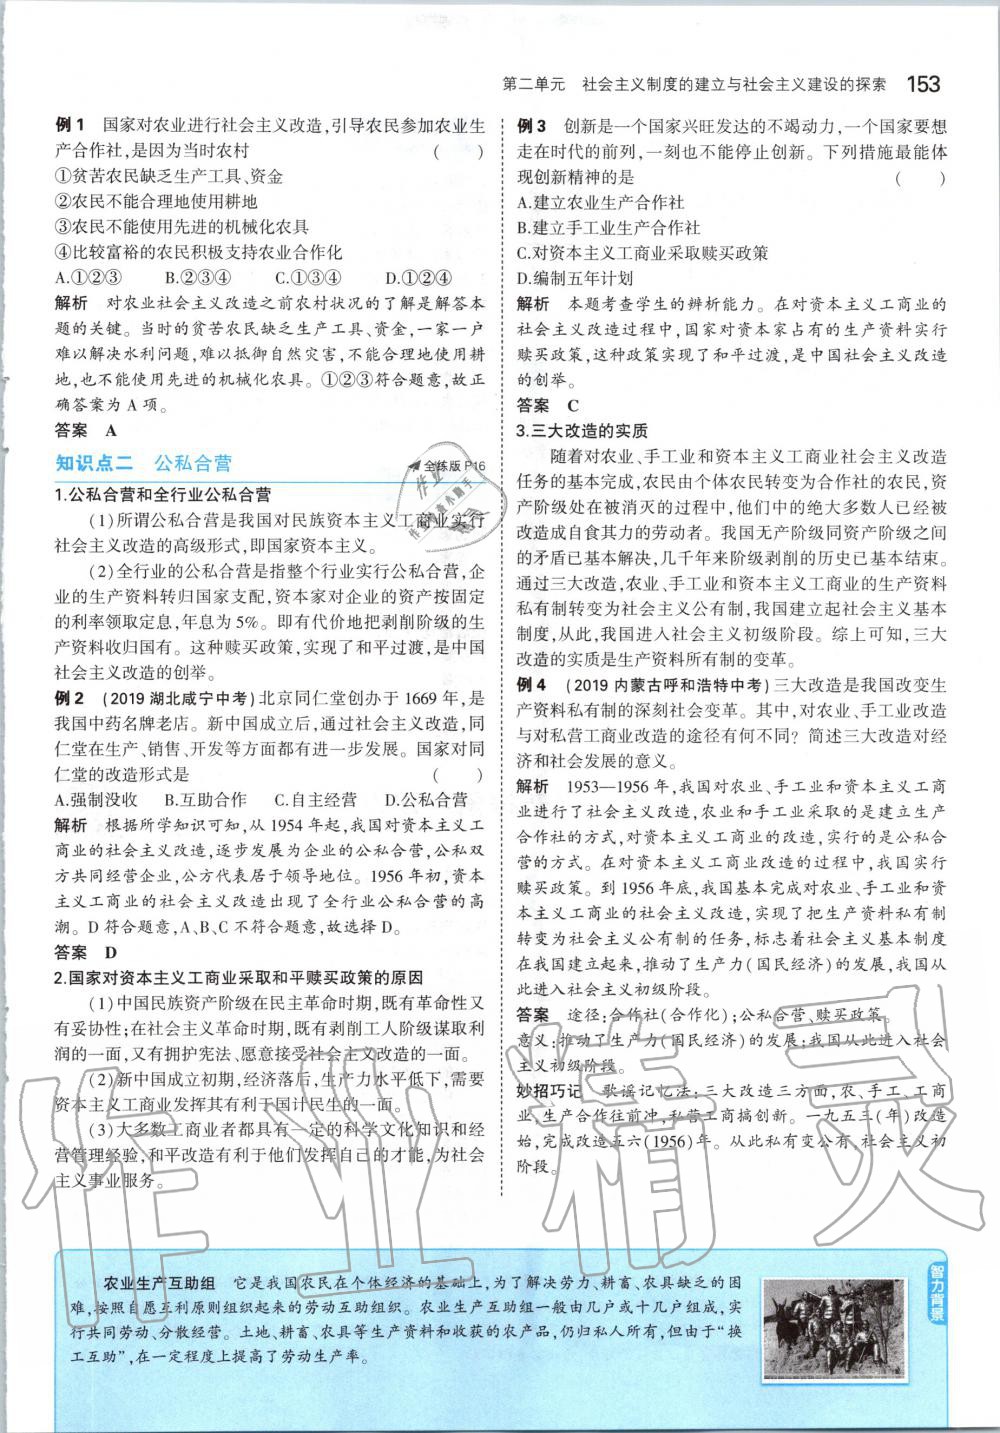 第二单元　社会主义制度的建立与社会主义建设的探索　153
例1　国家对农业进行社会主义改造,引导农民参加农业生
产合作社,是因为当时农村　(　　)
①贫苦农民缺乏生产工具、资金
②农民不能合理地使用耕地
③农民不能使用先进的机械化农具
④比较富裕的农民积极支持农业合作化
A.①②③　B.②③④　C.①③④　D.①②④
解析　对农业社会主义改造之前农村状况的了解是解答本
题的关键。当时的贫苦农民缺乏生产工具、资金,一家一户
难以解决水利问题,难以抵御自然灾害,不能合理地使用耕
地,也不能使用先进的机械化农具。①②③符合题意,故正
确答案为 A 项。
答案　A
知识点二　公私合营　全练版 P16
1.公私合营和全行业公私合营
(1)所谓公私合营是我国对民族资本主义工商业实行
社会主义改造的高级形式,即国家资本主义。
(2)全行业的公私合营是指整个行业实行公私合营,企
业的生产资料转归国家支配,资本家对企业的资产按固定
的利率领取定息,年息为 5%。即有代价地把剥削阶级的生
产资料收归国有。这种赎买政策,实现了和平过渡,是中国
社会主义改造的创举。
例2　(2019 湖北咸宁中考)北京同仁堂创办于 1669 年,是
我国中药名牌老店。新中国成立后,通过社会主义改造,同
仁堂在生产、销售、开发等方面都有进一步发展。国家对同
仁堂的改造形式是　(　　)
A.强制没收　B.互助合作　C.自主经营　D.公私合营
解析　根据所学知识可知,从 1954 年起,我国对资本主义工
商业的社会主义改造,逐步发展为企业的公私合营,公私双
方共同经营企业,公方代表居于领导地位。1956 年初,资本
主义工商业的社会主义改造出现了全行业公私合营的高
潮。D 符合题意,A、B、C 不符合题意,故选择 D。
答案　D
2.国家对资本主义工商业采取和平赎买政策的原因
(1)中国民族资产阶级在民主革命时期,既有革命性又
有妥协性;在社会主义革命时期,既有剥削工人阶级谋取利
润的一面,又有拥护宪法、愿意接受社会主义改造的一面。
(2)新中国成立初期,经济落后,生产力水平低下,需要
资本主义工商业发挥其有利于国计民生的一面。
(3)大多数工商业者都具有一定的科学文化知识和经
营管理经验,和平改造有利于他们发挥自己的才能,为社会
主义事业服务。
例3　创新是一个国家兴旺发达的不竭动力,一个国家要想
走在时代的前列,一刻也不能停止创新。下列措施最能体
现创新精神的是　(　　)
A.建立农业生产合作社
B.建立手工业生产合作社
C.对资本主义工商业采取赎买政策
D.编制五年计划
解析　本题考查学生的辨析能力。在对资本主义工商业的
社会主义改造过程中,国家对资本家占有的生产资料实行
赎买政策,这种政策实现了和平过渡,是中国社会主义改造
的创举。
答案　C
3.三大改造的实质
随着对农业、手工业和资本主义工商业社会主义改造
任务的基本完成,农民由个体农民转变为合作社的农民,资
产阶级处在被消灭的过程中,他们中的绝大多数人已经被
改造成自食其力的劳动者。我国无产阶级同资产阶级之间
的矛盾已基本解决,几千年来阶级剥削的历史已基本结束。
通过三大改造,农业、手工业和资本主义工商业的生产资料
私有制转变为社会主义公有制,我国建立起社会主义基本
制度,从此,我国进入社会主义初级阶段。综上可知,三大
改造的实质是生产资料所有制的变革。
例4　(2019 内蒙古呼和浩特中考)三大改造是我国改变生
产资料私有制的深刻社会变革。其中,对农业、手工业改造
与对私营工商业改造的途径有何不同?简述三大改造对经
济和社会发展的意义。
解析　1953—1956 年,我国对农业、手工业和资本主义工商
业进行了社会主义改造,农业和手工业采取的是建立生产
合作社的方式,对资本主义工商业的改造,实行的是公私合
营的方式。在对资本主义工商业改造的过程中,我国实行
赎买政策。到 1956 年底,我国基本完成对农业、手工业和资
本主义工商业的社会主义改造,实现了把生产资料私有制
转变为社会主义公有制的任务,标志着社会主义基本制度
在我国建立起来,推动了生产力(国民经济)的发展,我国从
此进入社会主义初级阶段。
答案　途径:合作社(合作化);公私合营、赎买政策。
意义:推动了生产力(国民经济)的发展;我国从此进入社会
主义初级阶段。
妙招巧记　歌谣记忆法:三大改造三方面,农、手工、工商
业,生产合作往前冲,私营工商搞创新。一九五三(年)改造
始,完成改造五六(1956)年。从此私有变公有,社会主义初
阶段。
智力背景
农业生产互助组　它是我国农民在个体经济的基础上,为了解决劳力、耕畜、农具缺乏的困
难,按照自愿互利原则组织起来的劳动互助组织。农业生产互助组一般由几户或十几户组成,实
行共同劳动、分散经营。土地、耕畜、农具等生产资料和收获的农产品,仍归私人所有,但由于“换
工互助”,在一定程度上提高了劳动生产率。
作业精灵